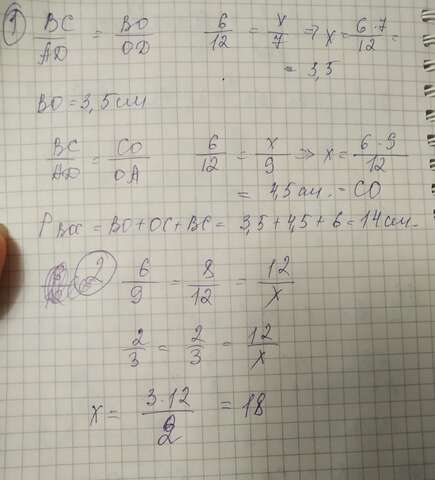 1) BC/AD = BO/OD 6/12 = x/7 ⇒ x = 6·7/12 =
= 3,5
BO = 3,5 см
BC/AD = CO/OA 6/12 = x/9 ⇒ x = 6·9/12
= 4,5 см. = CO
P BOC = BO+OC+BC = 3,5+4,5+6 = 14 см.
2 6/9 = 8/12 = 12/x
2/3 = 2/3 = 12/x
x = 3·12/2 = 18